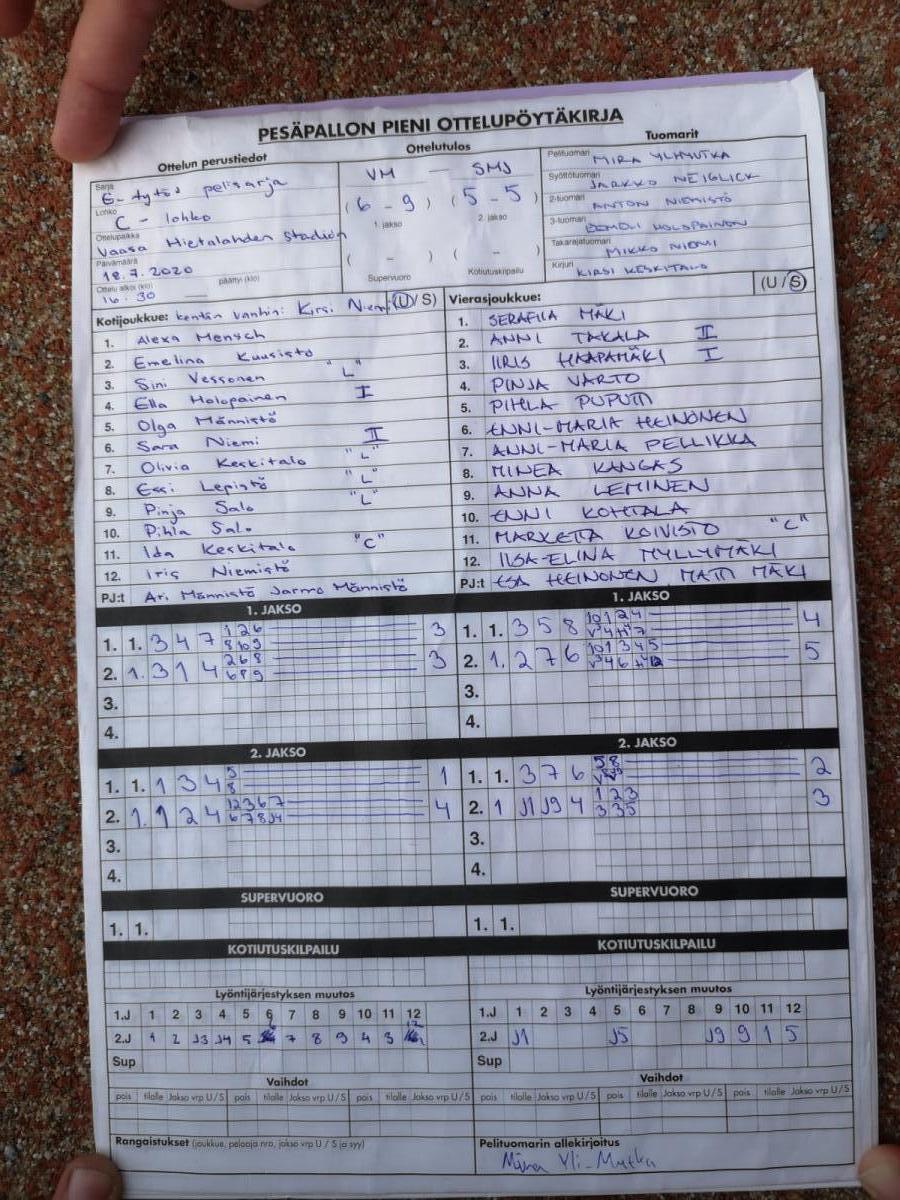 PESÄPALLON PIENI OTTELUPÖYTÄKIRJA
Ottelun perustiedot
Ottelutulos
Tuomarit
Sarja
E-tytöt pelisarja
Lohko
C - lohko
Ottelupaikka
Vaasa Hietalahden Stadion
Päivämäärä
18.7.2020
Ottelu alkoi (klo)
päättyi (klo)
16.30
VM - SMJ
( 6 - 9 ) ( 5 - 5 )
1. jakso 2. jakso
( - ) ( - )
Supervuoro Kotiutuskilpailu
Pelituomari
MIRA YLIMUTKA
Syöttötuomari
JARKKO NEIGLICK
2-tuomari
ANTON NIEMISTÖ
3-tuomari
HOLOPAINEN
Takarajatuomari
MIKKO NIEMI
Kirjuri
KIRSI KESKITALO
Kotijoukkue: kentän vanhin: Kirsi Niemi (U / S)
1. Alexa Mensch
2. Emelina Kuusisto
3. Sini Vessonen "L"
4. Ella Holopainen I
5. Olga Männistö
6. Sara Niemi II
7. Olivia Keskitalo "L"
8. Essi Lepistö "L"
9. Pinja Salo "L"
10. Pihla Salo
11. Ida Keskitalo "C"
12. Iris Niemistö
PJ:t Ari Männistö Jarmo Männistö
Vierasjoukkue: (U / S)
1. SERAFIIA MÄKI
2. ANNI TAKALA II
3. IIRIS HAAPAMÄKI I
4. PINJA VARTO
5. PIHLA PUPUTTI
6. ENNI-MARIA HEINONEN
7. ANNI-MARIA PELLIKKA
8. MINEA KANGAS
9. ANNA LEMINEN
10. ENNI KOHTALA
11. MARKETTA KOIVISTO "C"
12. IISA-ELINA MYLLYMÄKI
PJ:t ESA HEINONEN MATTI MÄKI
1. JAKSO
1. 1. 3 4 7 1 2 6 3
8 10 9
2. 1. 3 1 4 2 6 8 3
6 8 9
3.
4.
1. JAKSO
1. 1. 3 5 8 10 1 2 4 4
2. 1. 2 7 6 10 1 3 4 5 5
3.
4.
2. JAKSO
1. 1. 1 3 4 5 1
8
2. 1. 1 2 4 12 3 6 7 4
6 7 8 J4
3.
4.
2. JAKSO
1. 1. 3 7 6 5 8 2
2. 1 J1 J9 4 1 2 3 3
3 3 5
3.
4.
SUPERVUORO
1. 1.
SUPERVUORO
1. 1.
KOTIUTUSKILPAILU
KOTIUTUSKILPAILU
Lyöntijärjestyksen muutos
1.J 1 2 3 4 5 6 7 8 9 10 11 12
2.J 1 2 J3 J4 5 6 7 8 9 4 3 12
Sup
Lyöntijärjestyksen muutos
1.J 1 2 3 4 5 6 7 8 9 10 11 12
2.J J1 J5 J9 9 1 5
Sup
Vaihdot
pois tilalle Jakso vrp U / S pois tilalle Jakso vrp U / S pois tilalle Jakso vrp U / S
Vaihdot
pois tilalle Jakso vrp U / S pois tilalle Jakso vrp U / S pois tilalle Jakso vrp U / S
Rangaistukset (joukkue, pelaaja nro, jakso vrp U / S ja syy)
Pelituomarin allekirjoitus
Mira Yli-Mutka